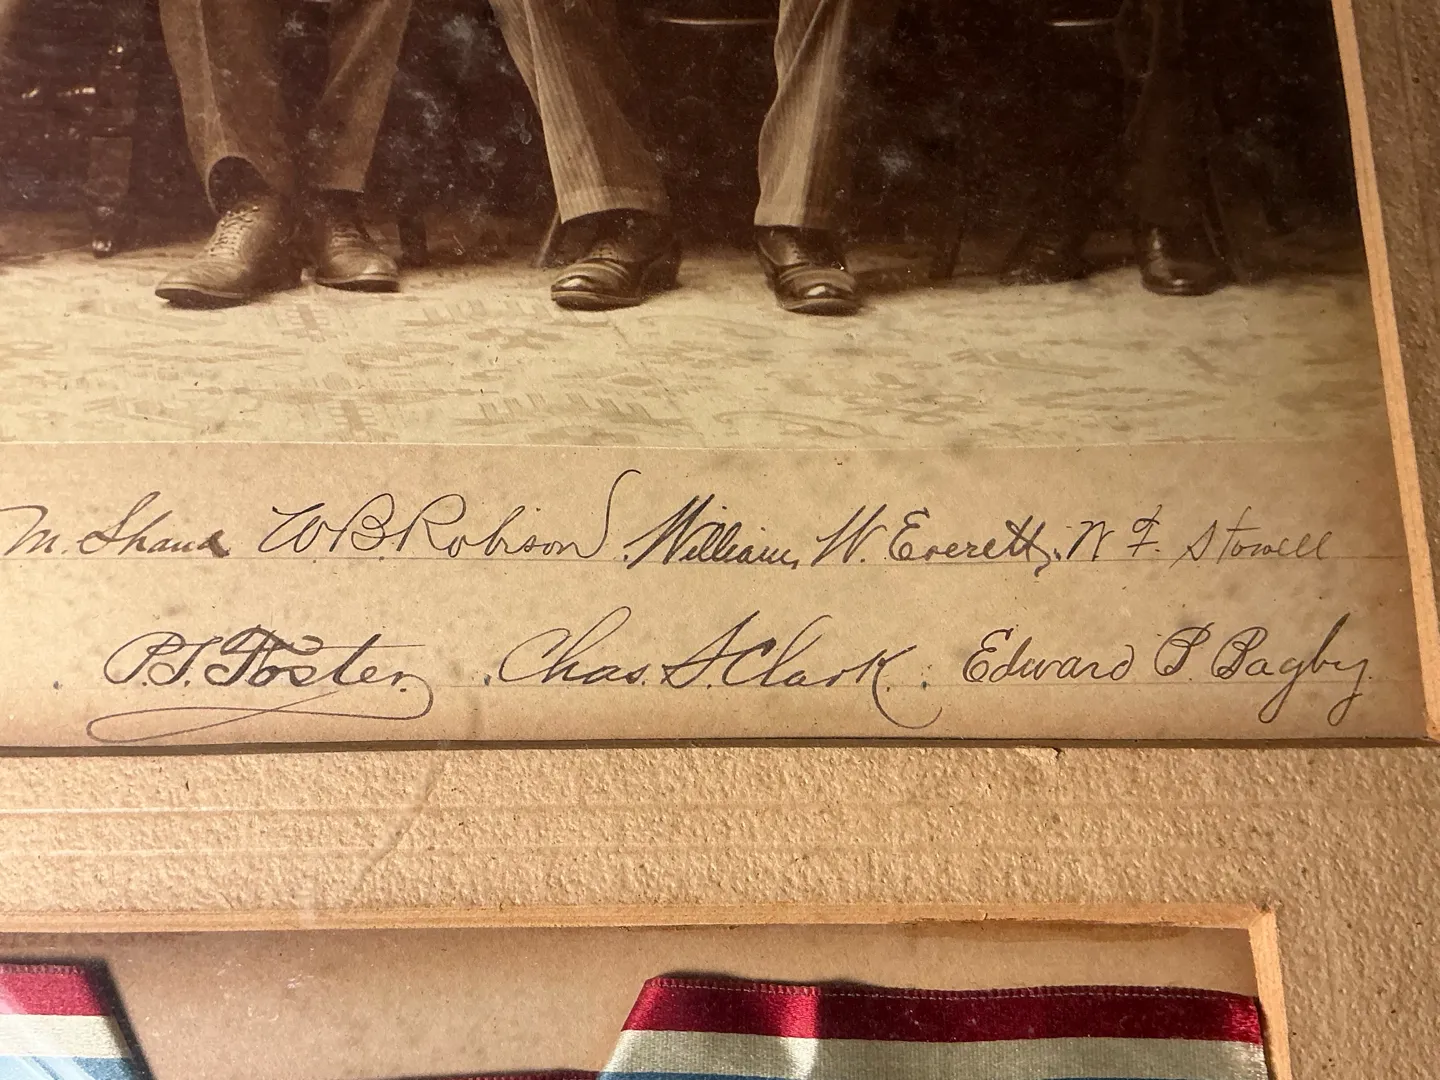 M. Shand W.B. Robison. William W. Everett. W F. Stowell
P.T. Foster. Chas. S. Clark. Edward P. Bagby.